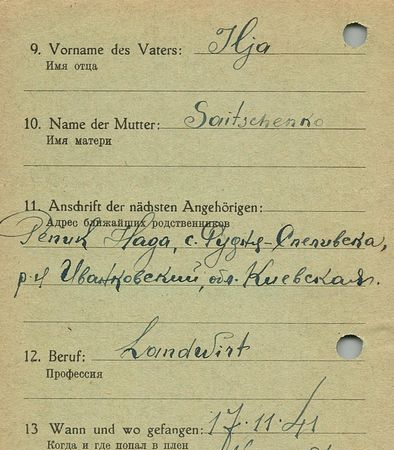 9. Vorname des Vaters: Ilja
Имя отца
10. Name der Mutter: Saitschenko
Имя матери
11. Anschrift der nächsten Angehörigen:
Адрес ближайших родственников
Репик Нада, с. Рудня-
р-н Иванковский, обл. Киевская.
12. Beruf: Landwirt
Профессия
13 Wann und wo gefangen: 17.11.41
Когда и где попал в плен